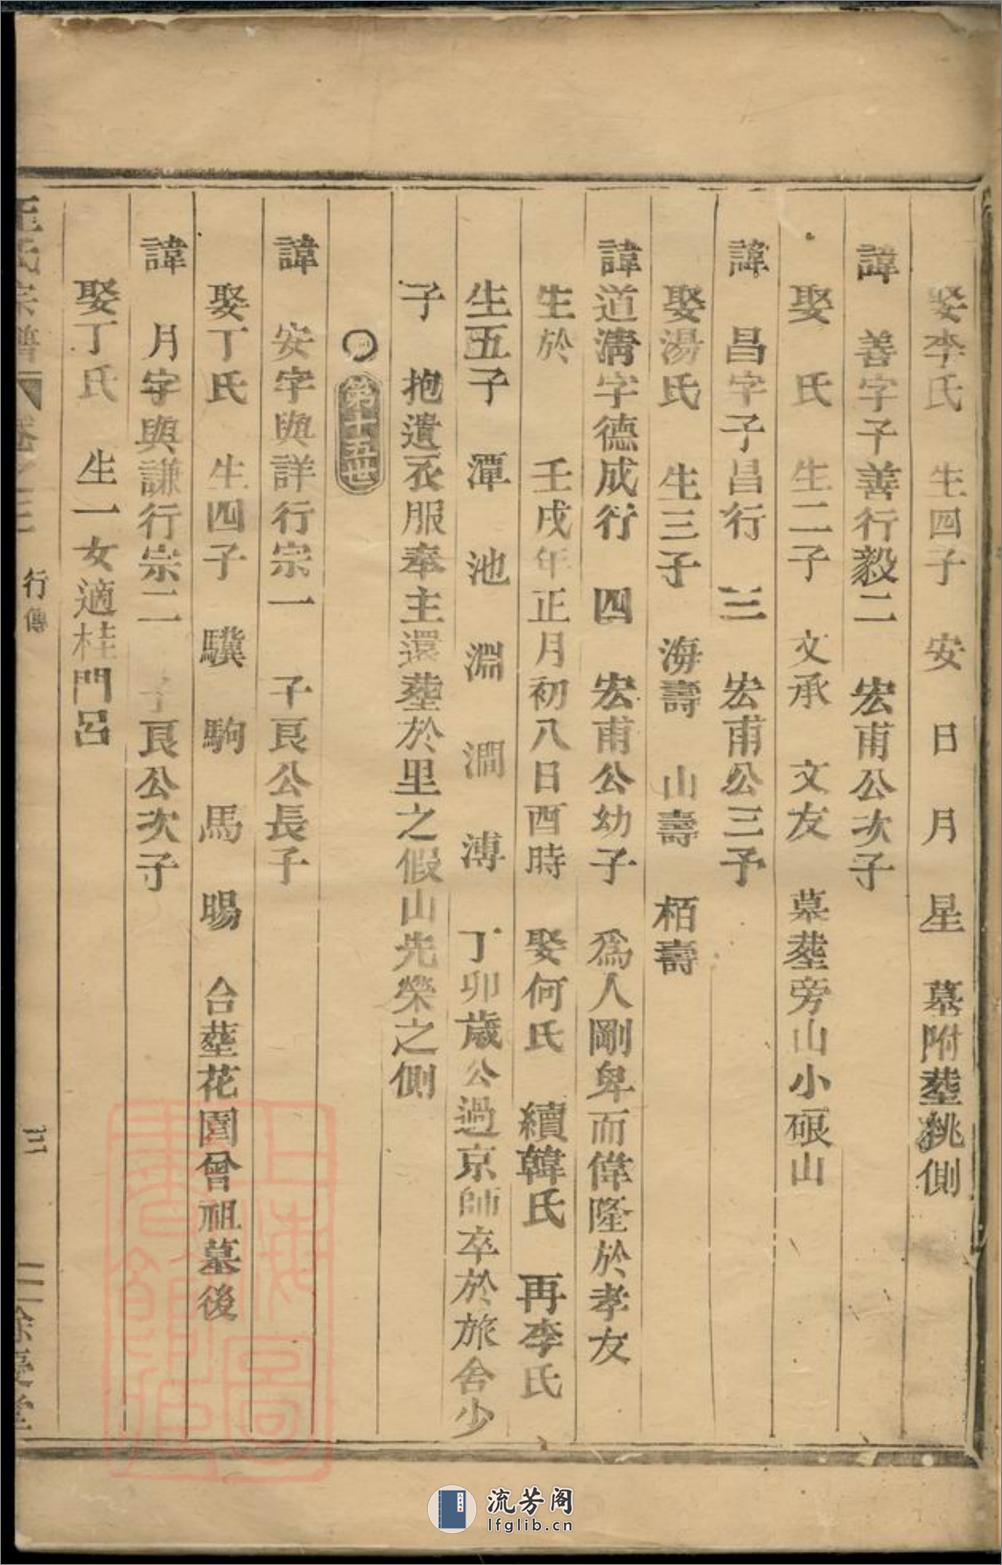 娶李氏 生四子 安 日 月 星 墓附塟桃側
諱 善字子善行毅二 宏甫公次子
娶 氏 生二子 文承 文友 墓塟旁山小硍山
諱 昌字子昌行 三 宏甫公三子
娶湯氏 生三子 海壽 山壽 栢壽
諱道淸字德成行 四 宏甫公幼子 爲人剛卑而偉隆於孝友
生於 壬戌年正月初八日酉時 娶何氏 續韓氏 再李氏
生五子 潭 池 淵 澗 溥 丁卯歲公過京師卒於旅舍少
子 抱遺衣服奉主還塟於里之假山先榮之側
第十五世
諱 安字與詳行宗一 子良公長子
娶丁氏 生四子 驥 駒 馬 暘 合塟花園曾祖墓後
諱 月字與謙行宗二 子良公次子
娶丁氏 生一女適桂門呂
王氏宗譜 卷之三 行傳 三 三餘堂
上海圖書館藏
流芳阁
lfglib.cn